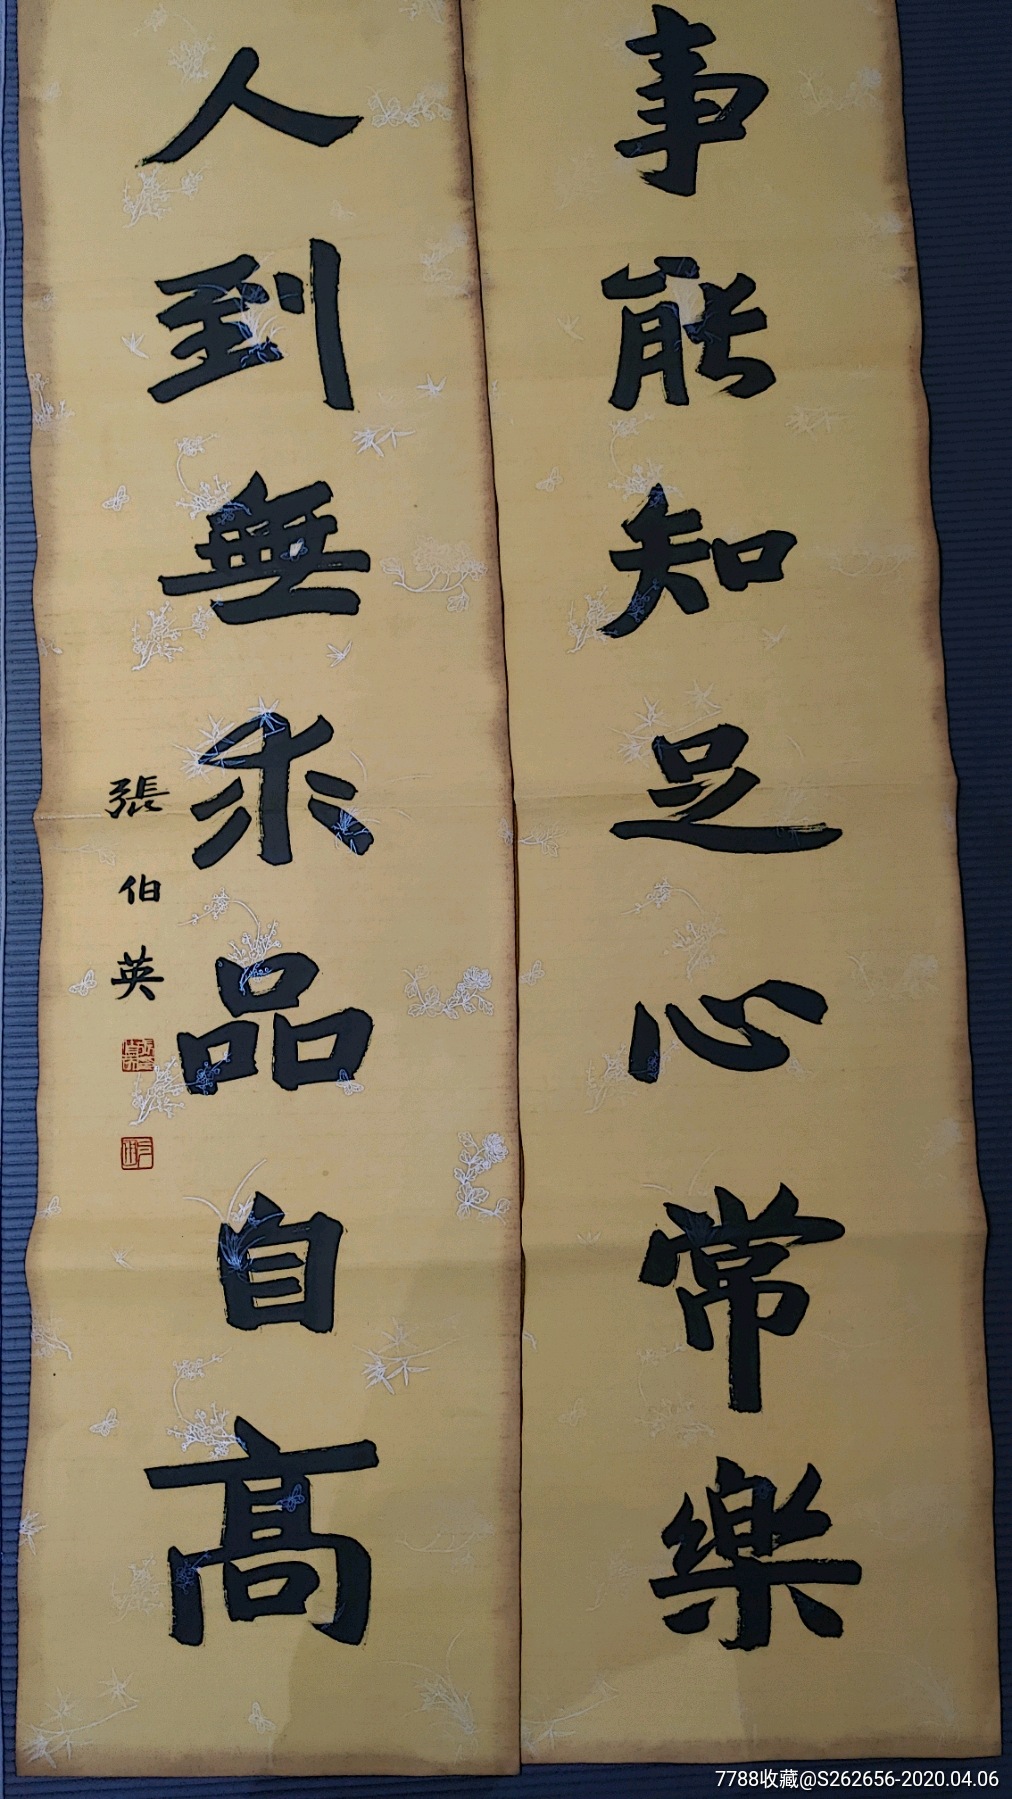 事能知足心常樂
人到無求品自高
張伯英
7788收藏@S262656-2020.04.06